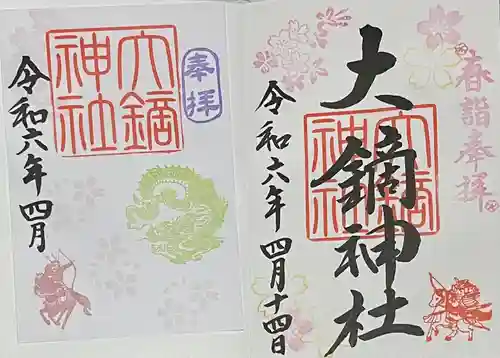 春詣奉拝
大鏑神社
大鏑神社
令和六年四月十四日
奉拝
大鏑神社
令和六年四月